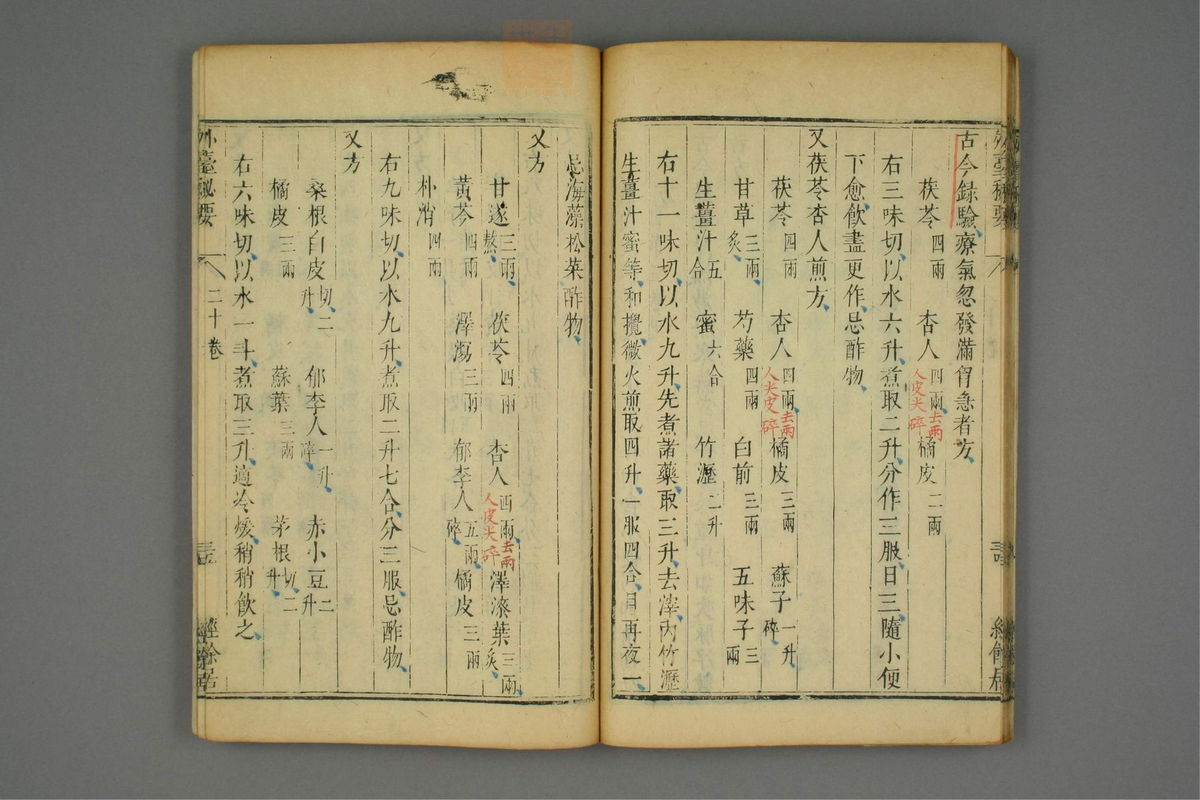 古今録驗療氣忽發滿胷急者方
茯苓四兩 杏人四兩去兩人皮尖碎 橘皮二兩
右三味切以水六升煮取二升分作三服日三隨小便
下愈飲盡更作忌酢物
又茯苓杏人煎方
茯苓四兩 杏人四兩去兩人尖皮碎 橘皮三兩 蘇子一升碎
甘草三兩炙 芍藥四兩 白前三兩 五味子三兩
生薑汁五合 蜜六合 竹瀝二升
右十一味切以水九升先煮諸藥取三升去滓内竹瀝
生薑汁蜜等和攪微火煎取四升一服四合日再夜一
忌海藻松菜酢物
又方
甘遂三兩熬 茯苓四兩 杏人四兩去兩人皮尖碎 澤漆葉三兩炙
黃芩四兩 澤瀉三兩 郁李人五兩碎 橘皮三兩
朴消四兩
右九味切以水九升煮取二升七合分三服忌酢物
又方
桑根白皮切二升 郁李人一升碎 赤小豆二升
橘皮三兩 蘇葉三兩 茅根切二升
右六味切以水一斗煮取三升適冷煖稍稍飲之
外臺秘要 二十卷 經餘居